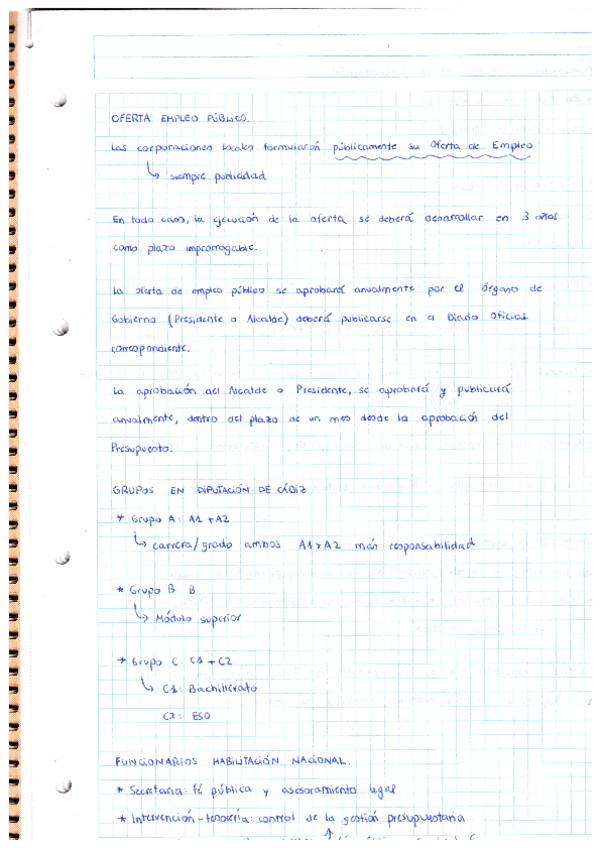 OFERTA EMPLEO PÚBLICO.
Las corporaciones locales formularán públicamente su Oferta de Empleo
↳ siempre publicidad
En todo caso, la ejecución de la oferta se deberá desarrollar en 3 años
como plazo improrrogable.
La oferta de empleo público se aprobará anualmente por el órgano de
Gobierno (Presidente o Alcalde) deberá publicarse en el Diario Oficial
correspondiente.
La aprobación del Alcalde o Presidente, se aprobará y publicará
anualmente, dentro del plazo de un mes desde la aprobación del
Presupuesto.
GRUPOS EN DIPUTACIÓN DE CÁDIZ
* Grupo A: A1 + A2
↳ carrera/grado ambos A1 > A2 más responsabilidad
* Grupo B B
↳ Módulo superior
* Grupo C C1 + C2
↳ C1: Bachillerato
C2: ESO
FUNCIONARIOS HABILITACIÓN NACIONAL.
* Secretaria: fé pública y asesoramiento legal
* Intervención-tesorería: control de la gestión presupuestaria